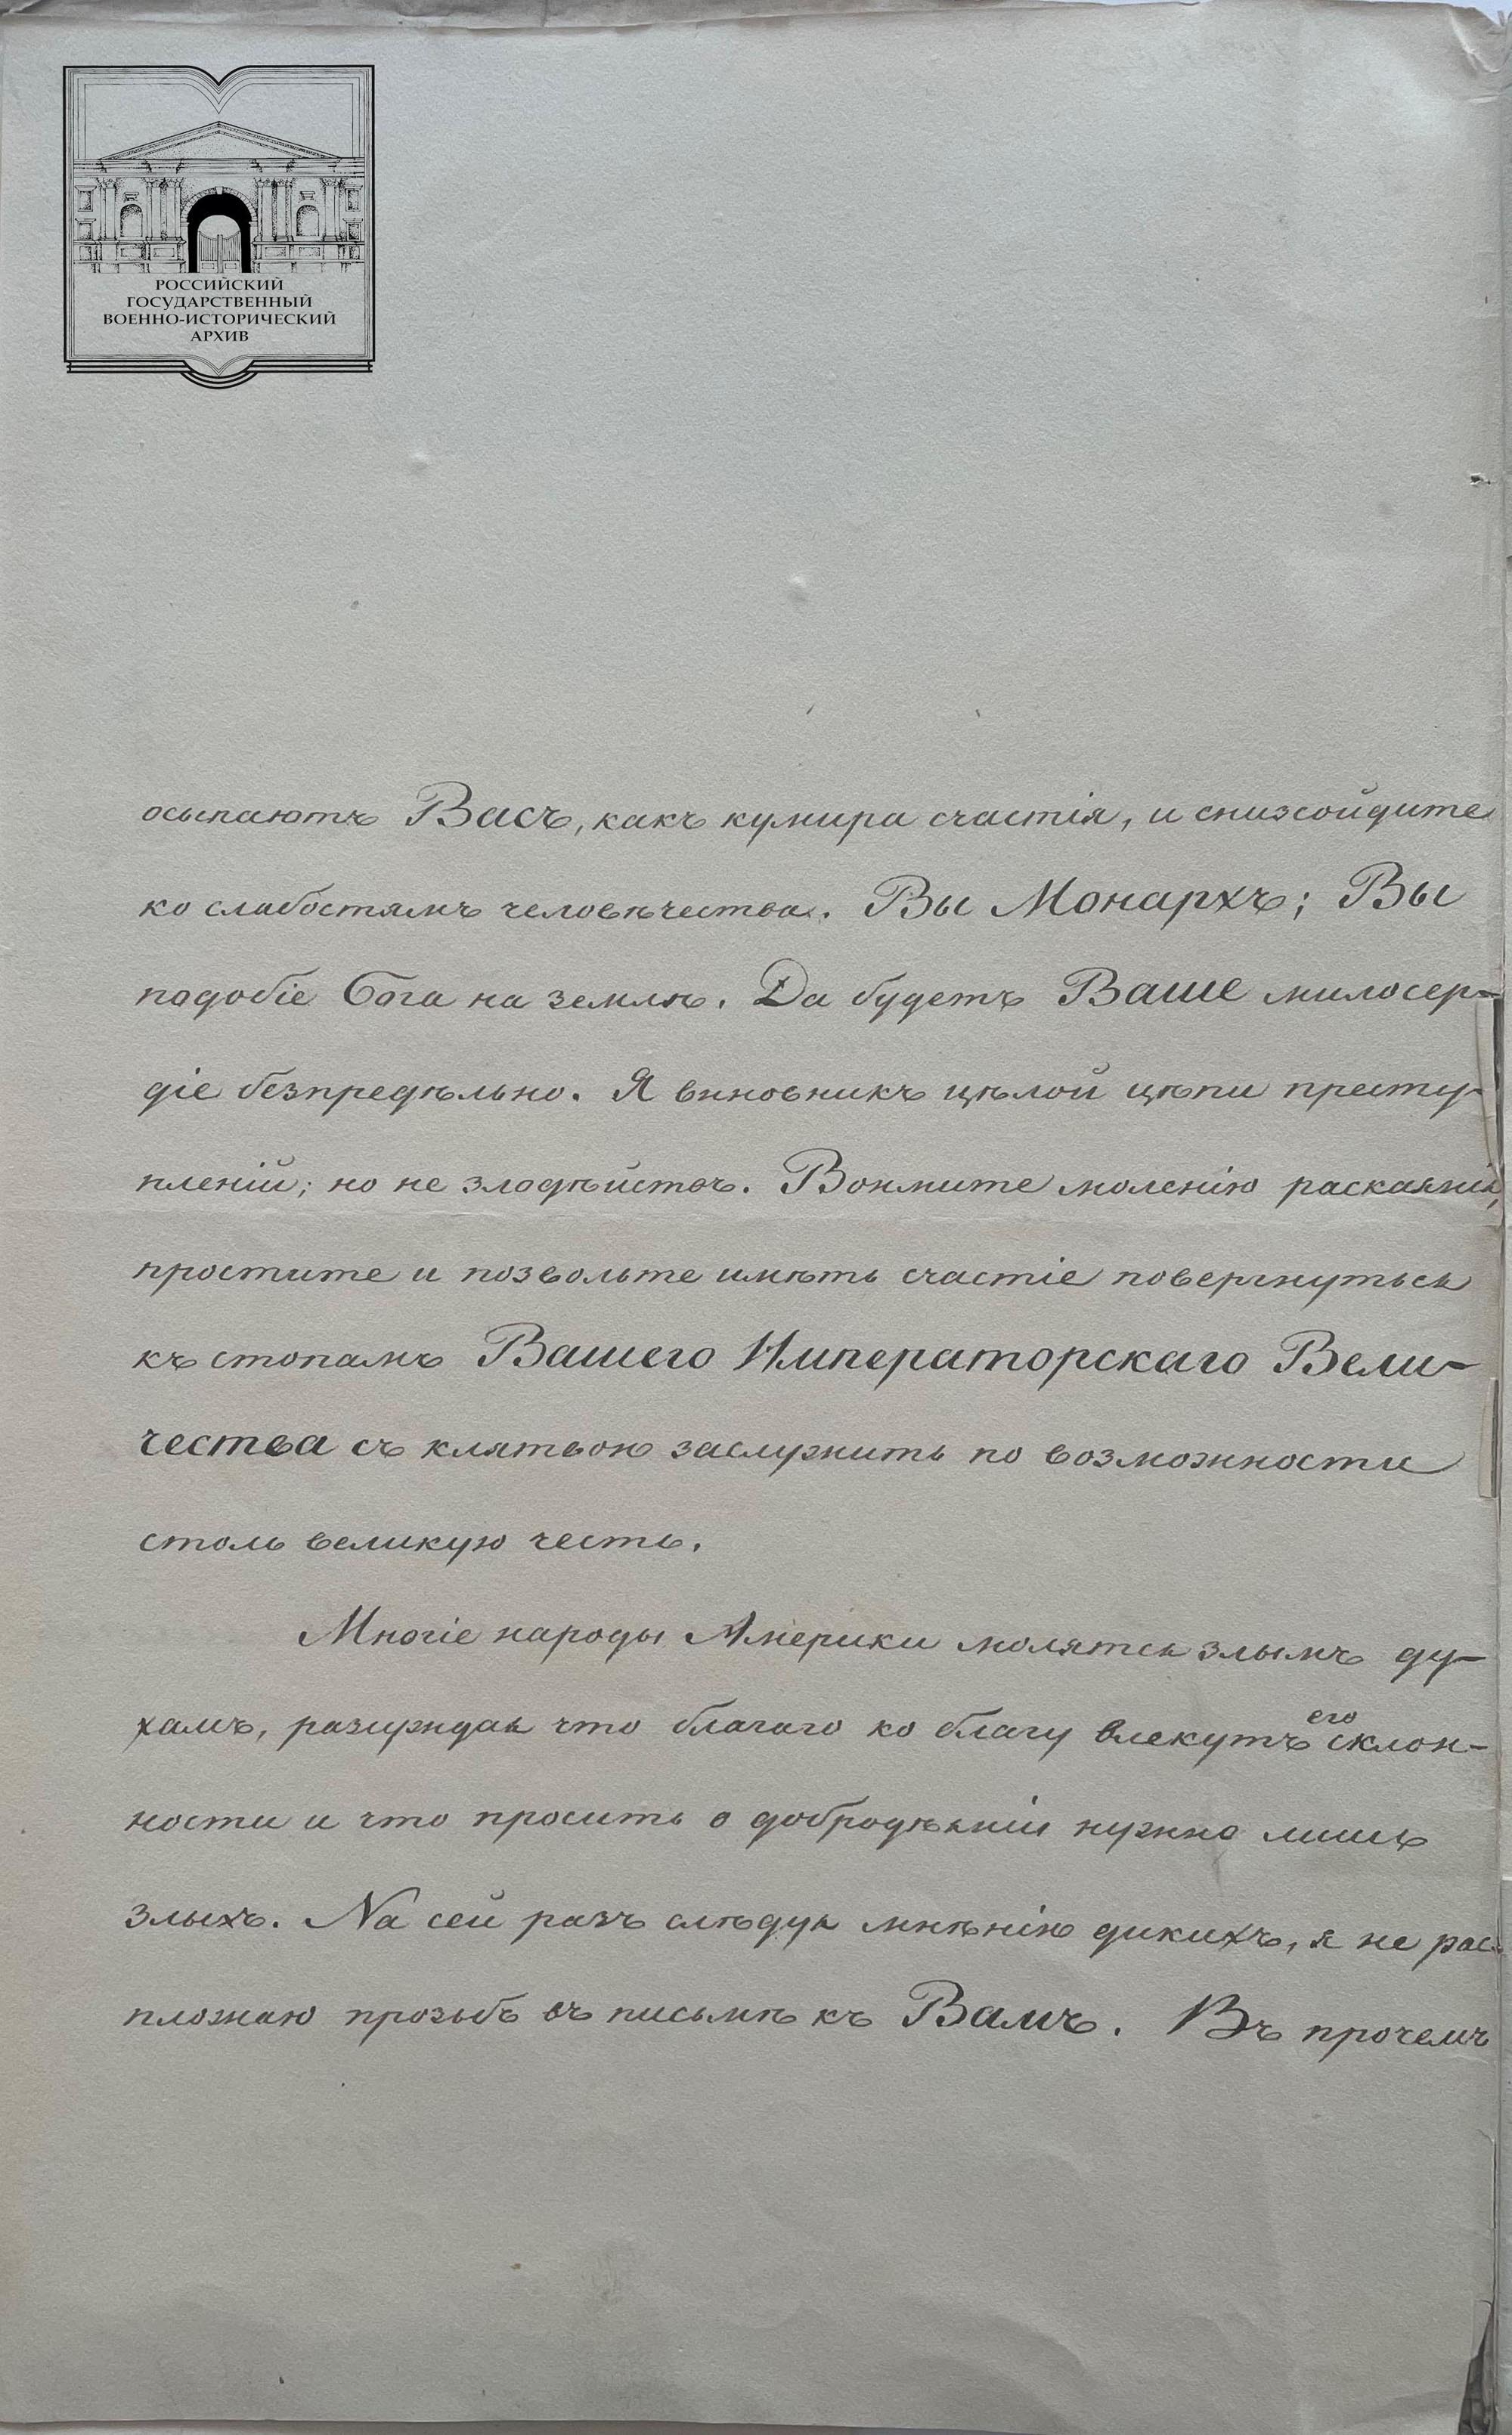 РОССИЙСКИЙ
ГОСУДАРСТВЕННЫЙ
ВОЕННО-ИСТОРИЧЕСКИЙ
АРХИВ
осыпаютъ Васъ, какъ кумира счастія, и снизойдите
ко слабостямъ человѣчества. Вы Монархъ; Вы
подобіе Бога на землѣ. Да будетъ Ваше милосер-
діе безпредѣльно. Я виновникъ цѣлой цѣпи престу-
пленій; но не злодѣйствъ. Вонмите моленію раскаянія,
простите и позвольте имѣть счастіе повергнуться
къ стопамъ Вашего Императорскаго Вели-
чества съ клятвою заслужить по возможности
столь великую честь.
Многіе народы Америки молятся злымъ ду-
хамъ, разсуждая что благаго ко благу влекутъ его склон-
ности и что просить о добродѣяніи нужно лишь
злыхъ. На сей разъ слѣдуя мнѣнію дикихъ, я не рас-
пложаю прозьбъ въ письмѣ къ Вамъ. Въ прочемъ